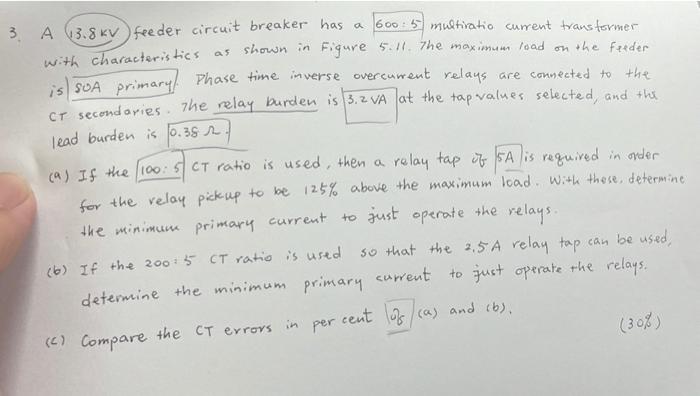 3. A 13.8 KV feeder circuit breaker has a 600 : 5 multiratio current transformer
with characteristics as shown in Figure 5.11. The maximum load on the feeder
is 80A primary. Phase time inverse overcurrent relays are connected to the
CT secondaries. The relay burden is 3.2 VA at the tap values selected, and the
lead burden is 0.38 Ω.
(a) If the 100 : 5 CT ratio is used, then a relay tap of 5A is required in order
for the relay pickup to be 125% above the maximum load. With these, determine
the minimum primary current to just operate the relays.
(b) If the 200 : 5 CT ratio is used so that the 2.5 A relay tap can be used,
determine the minimum primary current to just operate the relays.
(c) Compare the CT errors in per cent of (a) and (b).
(30%)